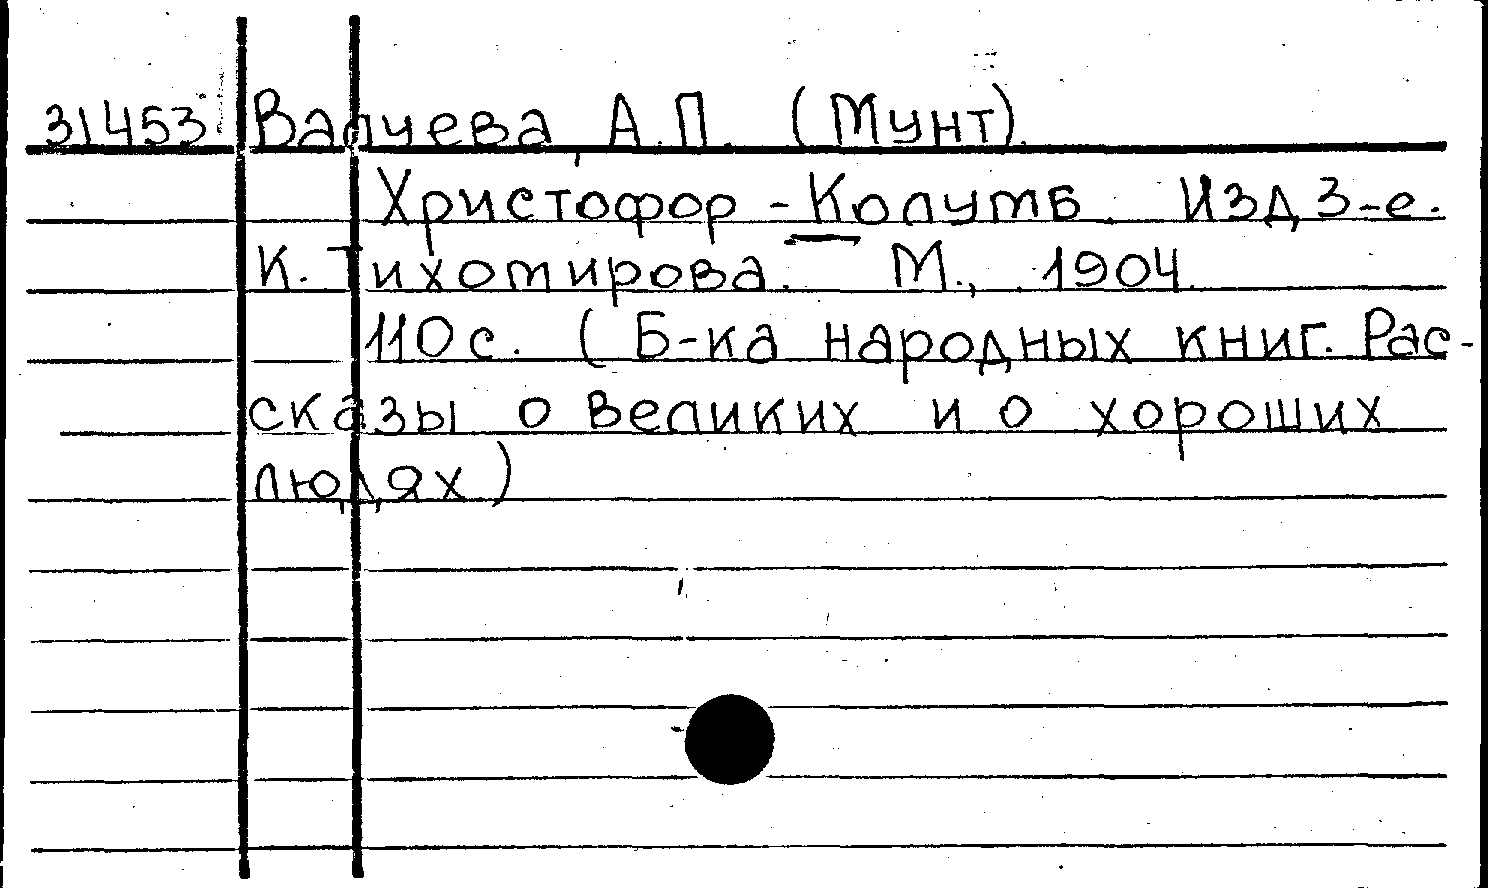 31453 Валуева, А.П. (Мунт).
Христофор - Колумб. Изд 3-е.
К. Тихомирова. М., 1904.
110 с. (Б-ка народных книг. Рас-
сказы о великих и о хороших
людях)